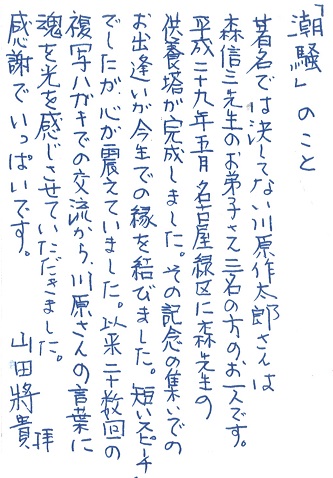 「潮騒」のこと
著名では決してない川原作太郎さんは
森信三先生のお弟子さん三名の方のお一人です。
平成二十九年五月名古屋緑区に森先生の
供養塔が完成しました。その記念の集いでの
お出逢いが今生での縁を結びました。短いスピーチ
でしたが、心が震えていました。以来二十数回の
複写ハガキでの交流から、川原さんの言葉に
魂を光を感じさせていただきました。
感謝でいっぱいです。
山田將貴
拝